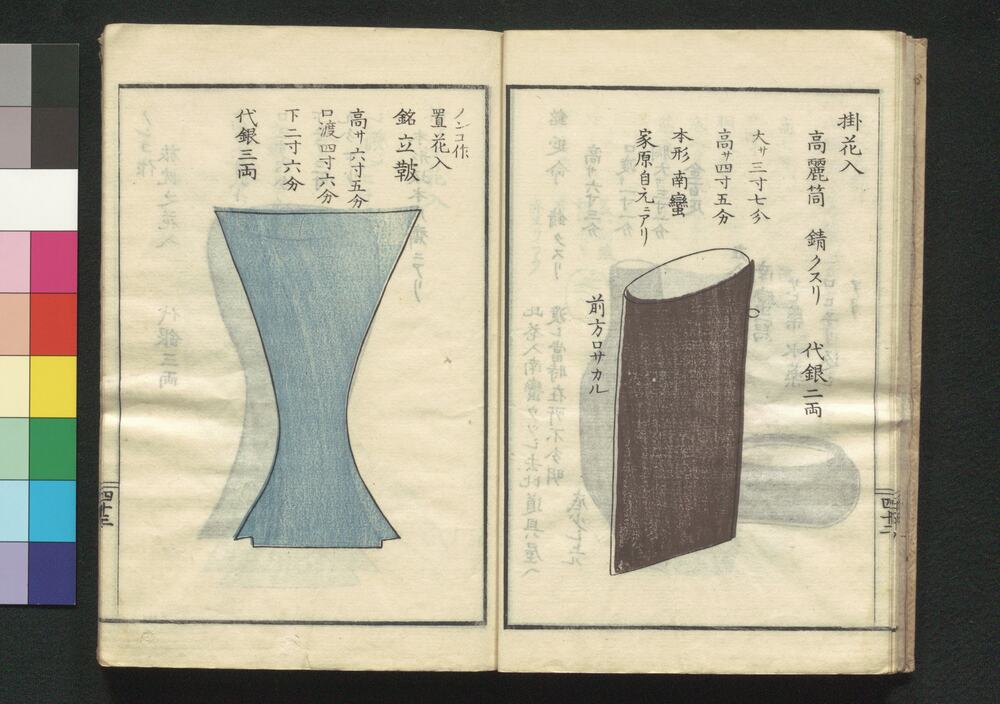 掛花入
高麗筒　錆クスリ　代銀二両
大サ三寸七分
高サ四寸五分
本形南蠻
家原自元ニアリ
前方ロサカル
四十二
ノンコ作
置花入
銘立鼓
高サ六寸五分
口渡四寸六分
下二寸六分
代銀三両
四十三